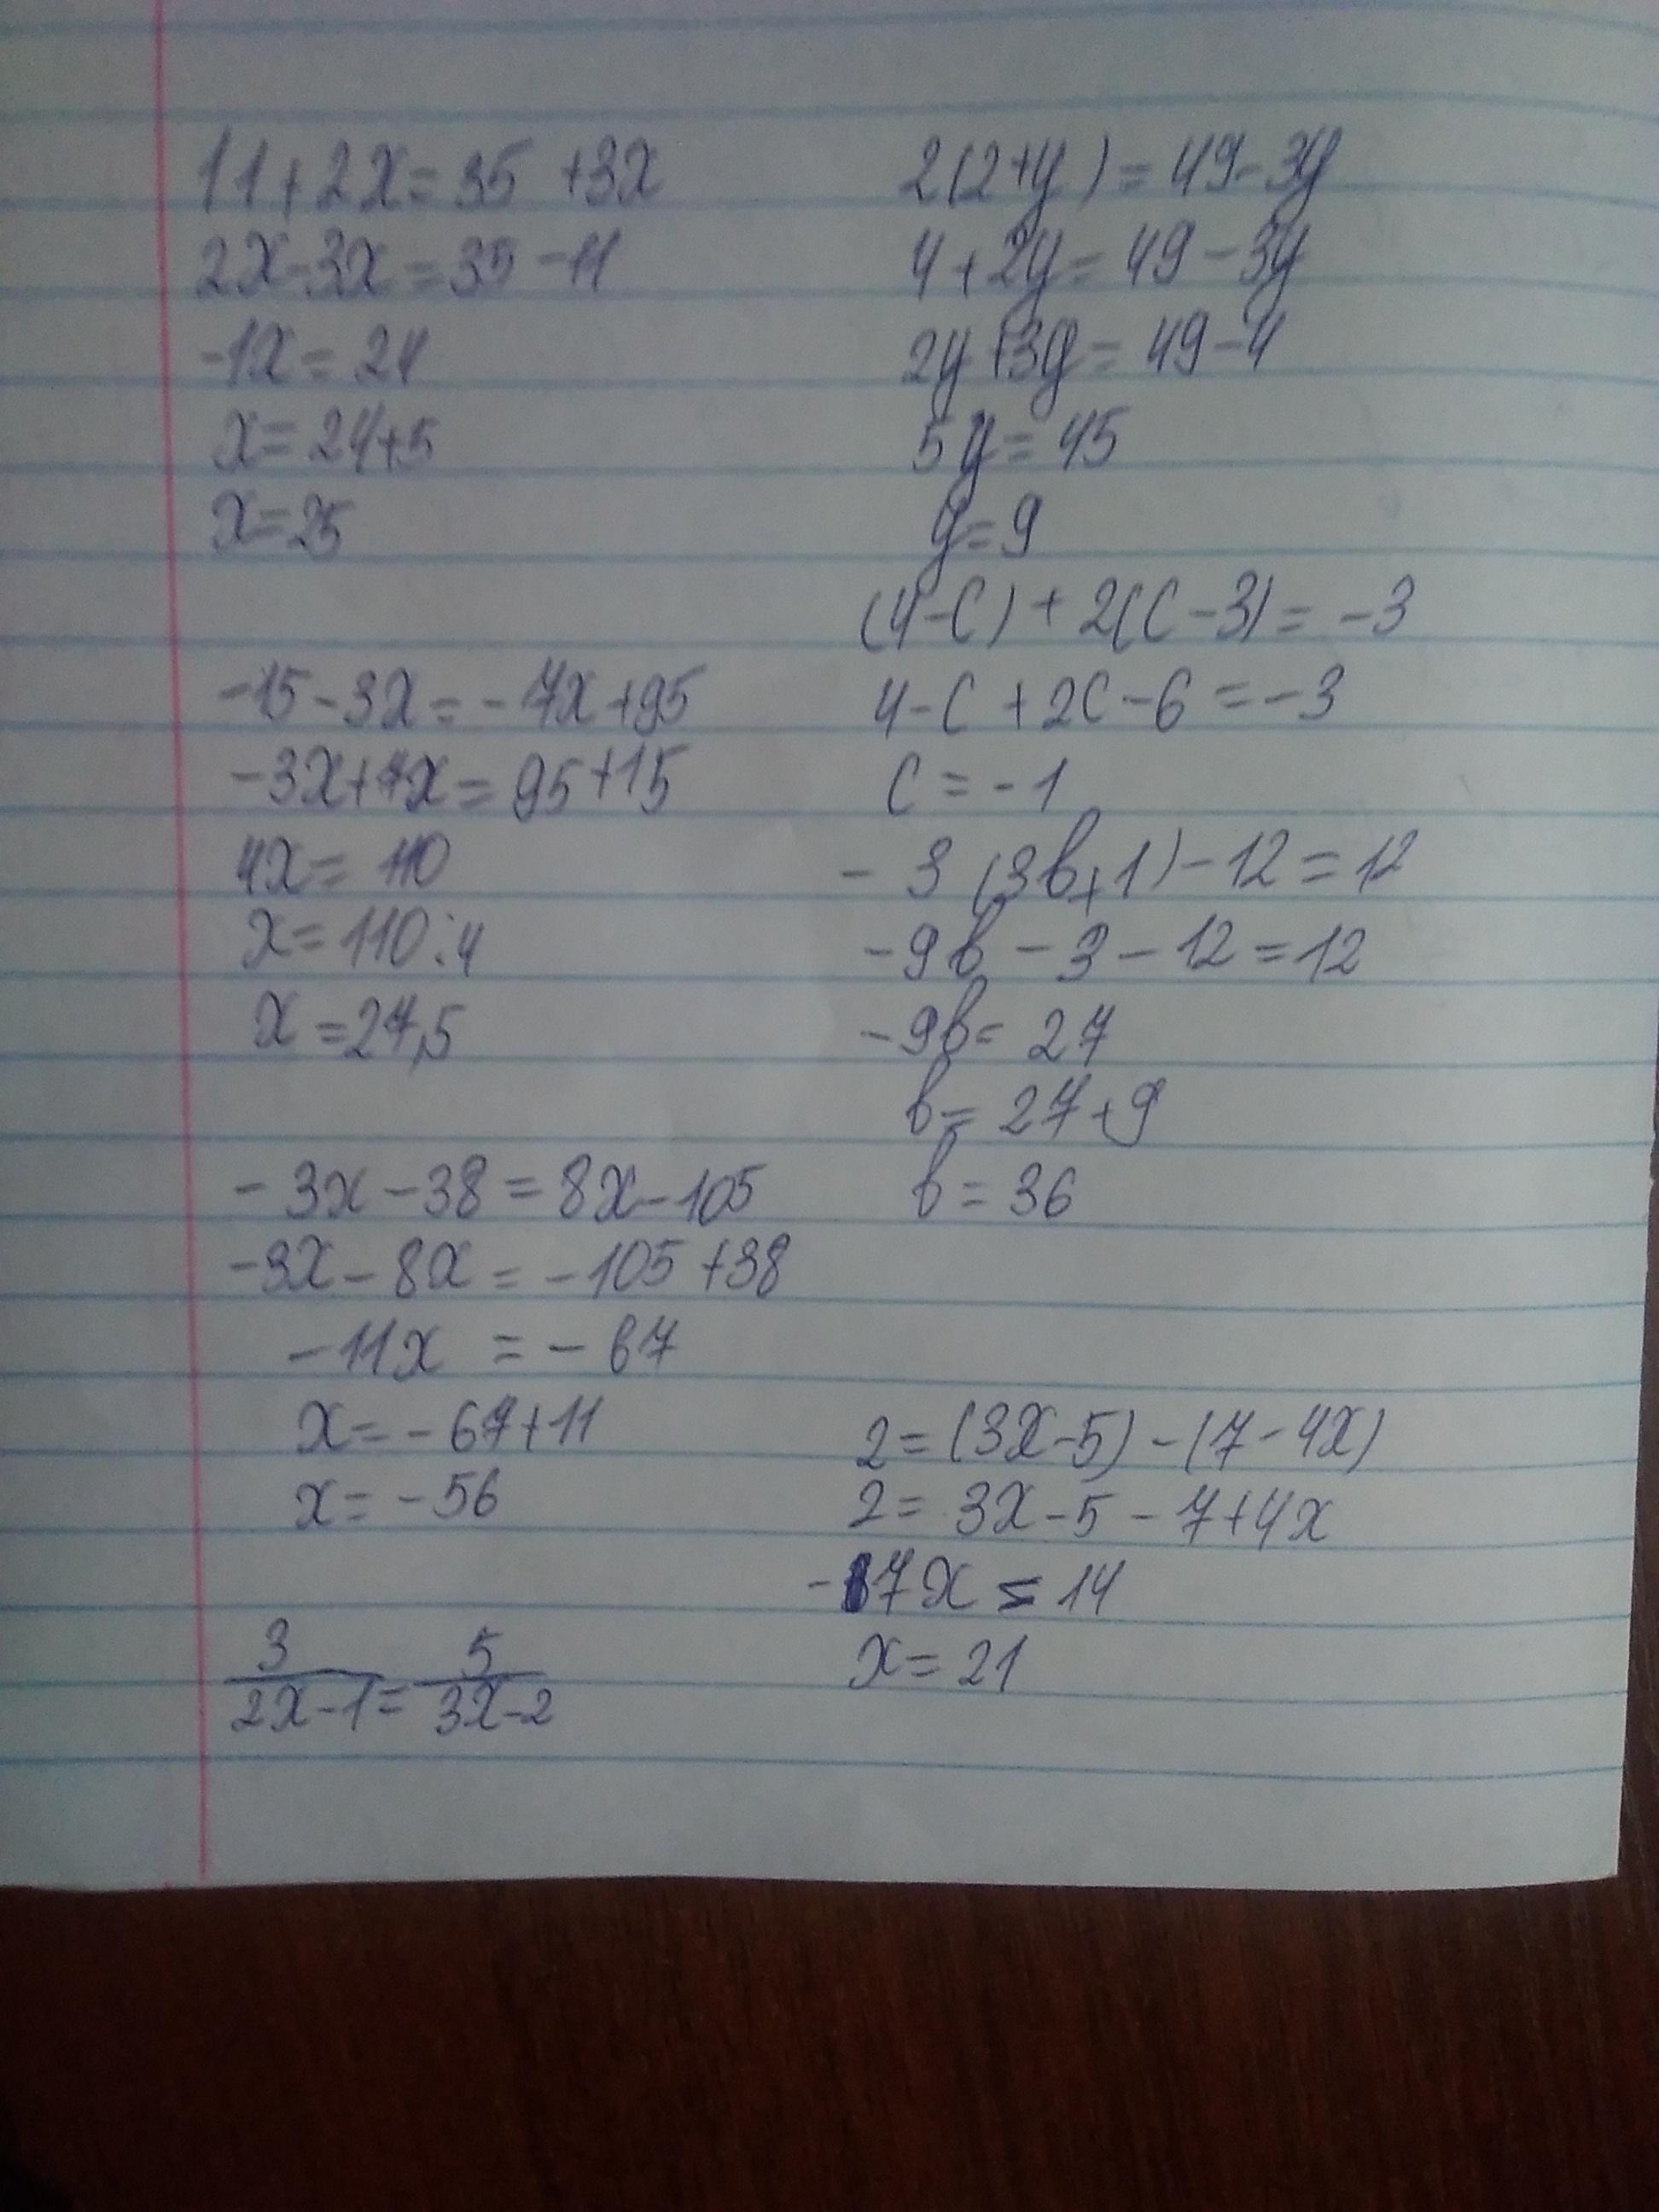 11+2x=35 +3x
2x-3x=35-11
-1x=24
x=24+5
x=25
-15-3x=-7x+95
-3x+7x=95+15
4x=110
x=110:4
x=27,5
-3x-38=8x-105
-3x-8x=-105+38
-11x =-67
x=-67+11
x=-56
3/(2x-1)=5/(3x-2)
2(2+y)=49-3y
4+2y=49-3y
2y+3y=49-4
5y=45
y=9
(4-c)+2(c-3)=-3
4-c+2c-6=-3
c=-1
-3(3b+1)-12=12
-9b-3-12=12
-9b=27
b=27+9
b=36
2=(3x-5)-(7-4x)
2=3x-5-7+4x
-7x=14
x=21